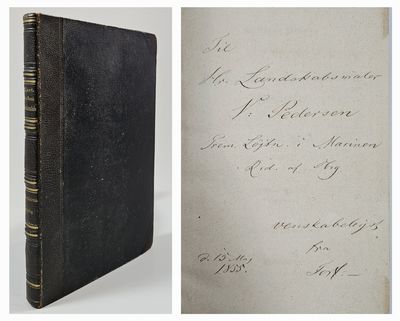 Til
Hr. Landskabsmaler
V: Pedersen
Prem. Löjtn. i Marinen
Rid. af Dbg.
venskabeligst
fra
Forf.
d. 15 May
1855.